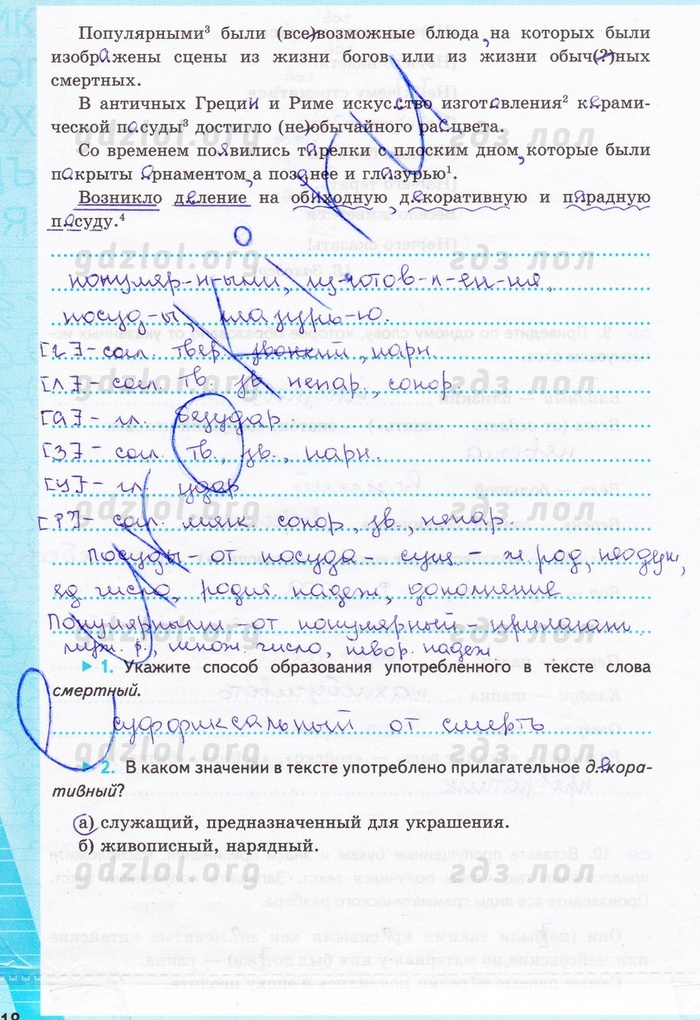 Популярными³ были (все)возможные блюда, на которых были
изображены сцены из жизни богов или из жизни обыч(?)ных
смертных.
В античных Греции и Риме искусство изготовления² керами-
ческой посуды³ достигло (не)обычайного расцвета.
Со временем появились тарелки с плоским дном, которые были
покрыты орнаментом, а позднее и глазурью¹.
Возникло деление на обиходную, декоративную и парадную
посуду.⁴
gdzlol.org гдз лол
популяр-н-ыми, из-готов-л-ен-ия,
посуд-ы, глазурь-ю.
[г] - согл. твер. звонкий, парн.
[л] - согл. тв. зв. непар., сонор.
[а] - гл. безудар.
[з] - согл. тв., зв., парн.
[у] - гл. удар
[р'] - согл. мягк. сонор., зв., непар.
Посуды - от посуда - сущ - ж. род, неодуш,
ед. число, родит. падеж, дополнение
Популярными - от популярный - прилагат.
муж. р., множ. число, твор. падеж
1. Укажите способ образования употреблённого в тексте слова
смертный.
суффиксальный от смерть
2. В каком значении в тексте употреблено прилагательное декора-
тивный?
а) служащий, предназначенный для украшения.
б) живописный, нарядный.
gdzlol.org гдз лол